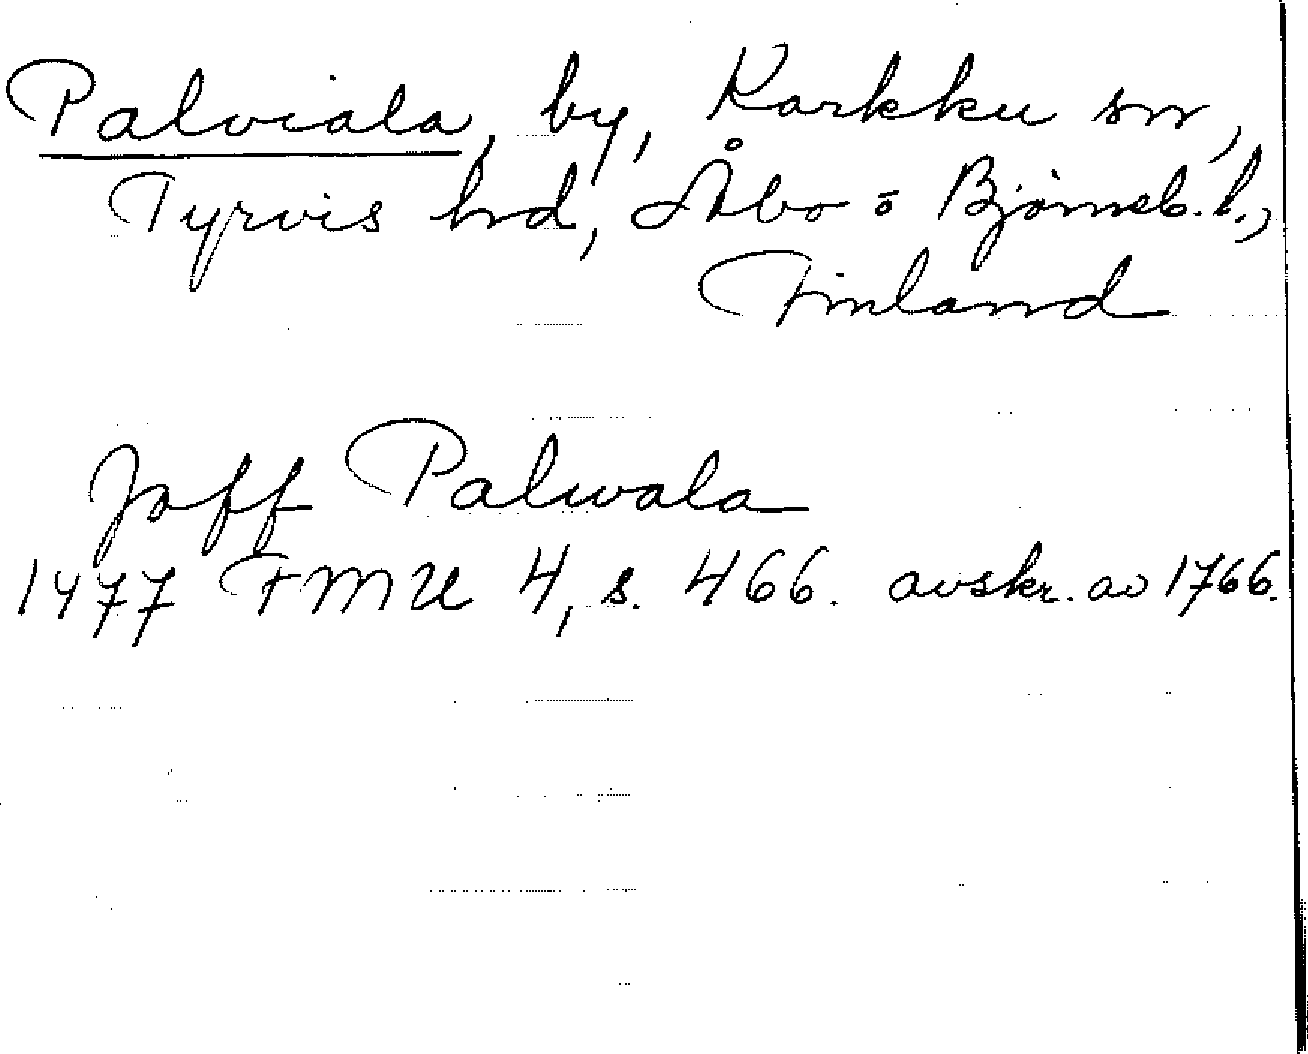 Palviala, by, Karkku sn,
Tyrvis hrd, Åbo o Björneb. l.,
Finland
Joff Palwala
1477 FMU 4, s. 466. avskr. av 1766.